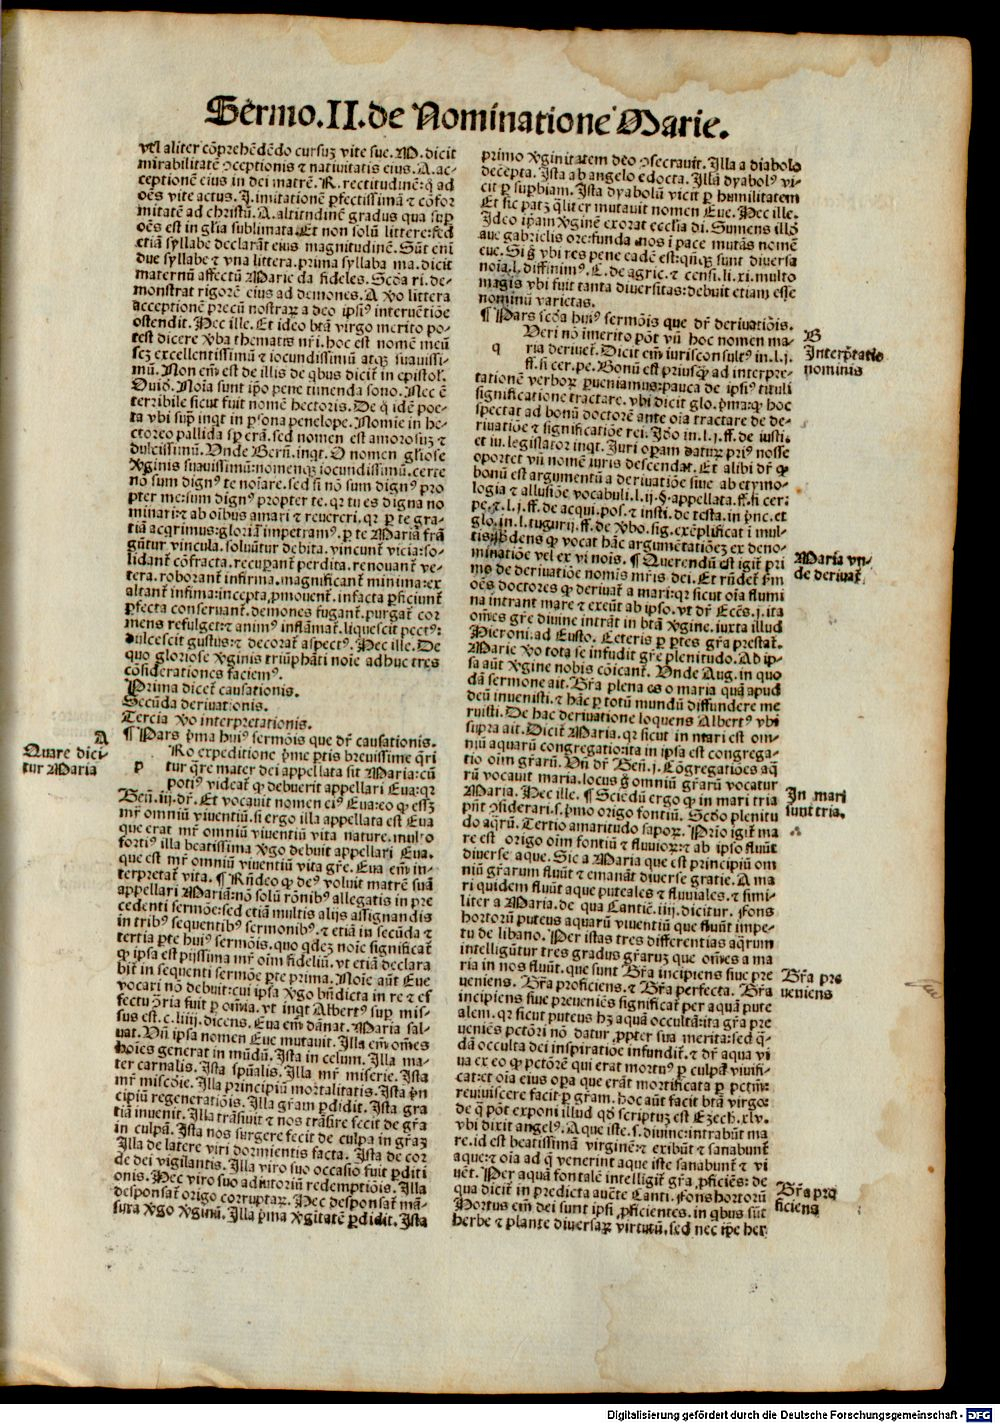 Sermo.II.de Nominatione Marie.
vel aliter cōprehēdēdo cursuꝫ vite sue. M. dicit
mirabilitatē ꝯceptionis ⁊ natiuitatis eius. A. ac-
ceptionē eius in dei matrē. R. rectitudinē: q̄ ad
oēs vite actus. J. imitationē ꝑfectissimā ⁊ cōfor
mitatē ad christū. A. altitudinē gradus qua suꝑ
oēs est in glia sublimata. Et non solū littere: sed
etiā syllabe declarāt eius magnitudinē. Sūt eni
due syllabe ⁊ vna littera. prima syllaba ma. dicit
maternū affectū Marie da fideles. Scd̄a ri. de-
monstrat rigorē eius ad demones. A ṽo littera
acceptionē precū nostraꝝ a deo ipsiꝰ interuētiōe
ostendit. Hec ille. Et ideo btā virgo merito po-
test dicere ṽba thematis nr̄i. hoc est nomē meū
scꝫ excellentissimū ⁊ iocundissimū atqꝫ suauissi-
mū. Non em̄ est de illis de qbus dicit̄ in epistol̄.
Ouid̄. Noīa sunt ip̄o pene timenda sono. Nec ē
terribile sicut fuit nomē hectoris. De q̄ idē poe-
ta vbi sup̄ inqt in ꝑsona penelope. Nomie in he-
ctoreo pallida sꝑ erā. sed nomen est amorosuꝫ ⁊
dulcissimū. Vnde Bern̄. inqt. O nomen gliose
ṽginis suauissimū: nomenqꝫ iocundissimū. certe
nō sum dignꝰ te noīare. sed si nō sum dignꝰ pro
pter me: sum dignꝰ propter te. qr tu es digna no
minari: ⁊ ab oībus amari ⁊ reuereri. qr ꝑ te gra-
tiā acqrimus: gloriā impetramꝰ. ꝑ te Mariā frā
gūtur vincula. soluūtur debita. vincunt̄ vicia: so-
lidant̄ cōfracta. recuꝑant̄ perdita. renouant̄ ve-
tera. roborant̄ infirma. magnificant̄ minima: ex
altant̄ infima: incepta ꝓmouent̄. infacta ꝑficiunt̄
ꝑfecta conseruant̄. demones fugant̄. purgat̄ cor
mens refulget: ⁊ animꝰ inflāmat̄. liquescit pectꝰ:
dulcescit gustus: ⁊ decorat̄ aspectꝰ. Hec ille. De
quo gloriose ṽginis triūphāti noīe adhuc tres
cōsiderationes faciemꝰ.
Prima dicet̄ causationis.
Secūda deriuationis.
Tercia ṽo interpretationis.
¶ Pars p̄ma huiꝰ sermōis que dr̄ causationis.
A
Quare dici-
tur Maria
Ro expeditione p̄me ꝑtis breuissime q̄ri
p tur q̄re mater dei appellata sit Maria: cū
potiꝰ videat̄ ꝙ debuerit appellari Eua: qr
Ben̄. iij. dr̄. Et vocauit nomen eiꝰ Eua: eo ꝙ esset
mr̄ omniū viuentiū. si ergo illa appellata est Eua
que erat mr̄ omniū viuentiū vita nature. multo
fortiꝰ illa beatissima ṽgo debuit appellari Eua.
que est mr̄ omniū viuentiū vita gr̄e. Eua em̄ in-
terpretat̄ vita. ¶ Rn̄deo ꝙ deꝰ voluit matrē suā
appellari Mariā: nō solū rōnibꝰ allegatis in pre
cedenti sermōe: sed etiā multis alijs assignandis
in tribꝰ sequentibꝰ sermonibꝰ. ⁊ etiā in secūda ⁊
tertia ꝑte huiꝰ sermōis. quo qdeꝫ noīe significat̄
ꝙ ipsa est pijssima mr̄ oīm fideliū. vt etiā declara
bit̄ in sequenti sermōe ꝑte prima. Noīe aūt Eue
vocari nō debuit: cui ipsa ṽgo bn̄dicta in re ⁊ ef
fectu ꝯtria fuit ꝑ omīa. vt inqt Albertꝰ suꝑ mis-
sus est. c. liiij. dicens. Eua em̄ dānat. Maria sal-
uat. Vn̄ ipsa nomen Eue mutauit. Illa em̄ om̄es
hoīes generat in mūdū. Ista in celum. Illa ma-
ter carnalis. Ista spūalis. Illa mr̄ miserie. Ista
mr̄ miscōie. Illa principiū mortalitatis. Ista p̄n
cipiū regenerationis. Illa gr̄am ꝑdidit. Ista gra
tiā inuenit. Illa trāsiuit ⁊ nos trāsire fecit de gr̄a
in culpā. Ista nos surgere fecit de culpa in gr̄aꝫ
Illa de latere viri dormientis facta. Ista de cor
de dei vigilantis. Illa viro suo occasio fuit ꝑditi
onis. Hec viro suo adiutoriū redemptiōis. Illa
desponsat̄ origo corruptaꝝ. Hec desponsat̄ mā-
sura ṽgo ṽginū. Illa p̄ma ṽgītatē ꝑdidit. Ista
primo ṽginitatem deo ꝯsecrauit. Illa a diabolo
decepta. Ista ab angelo edocta. Illā dyabolꝰ vi-
cit ꝑ suꝑbiam. Ista dyabolū vicit ꝑ humilitatem
Et sic patꝫ qliter mutauit nomen Eue. Hec ille.
Ideo ip̄am ṽginē exorat ecclīa di. Sumens illd̄
aue gabrielis ore: funda nos ī pace mutās nomē
eue. Si g̊ vbi res pene eadē est: qn̄qꝫ sunt diuersa
noīa. l. diffinimꝰ. C. de agric. ⁊ censi. li. xi. multo
magis vbi fuit tanta diuersitas: debuit etiam esse
nominū varietas.
¶ Pars scd̄a huiꝰ sermōis que dr̄ deriuatiōis.
B
Interp̄tatio
nominis
Veri nō īmerito pōt vn̄ hoc nomen ma-
q ria deriuet̄. Dicit em̄ iurisconsultꝰ in. l. j.
ff. si cer. pe. Bonū est priusq̄ ad interpre-
tationē verboꝝ ꝑueniamus: pauca de ipsiꝰ tituli
significatione tractare. vbi dicit glo. p̄ma: ꝙ hoc
spectat ad bonū doctorē ante oīa tractare de de-
riuatiōe ⁊ significatiōe rei. Jd̄o in. l. j. ff. de iusti.
et iu. legislator inqt. Iuri oꝑam daturꝝ priꝰ nosse
oportet vn̄ nomē iuris descendat. Et alibi dr̄ ꝙ
bonū est argumentū a deriuatiōe siue ab etymo-
logia ⁊ allusiōe vocabuli. l. ij. §. appellata. ff. si cer:
pe. ⁊. l. j. ff. de acqui. pos. ⁊ insti. de testa. in p̄nc. et
glo. in. l. tugurij. ff. de ṽbo. sig. exēplificat ī mul-
tis. dens ꝙ vocat hāc argumētatiōeꝫ ex deno-
minatiōe vel ex vi nois. ¶ Querendū est igit̄ pri
Maria vn-
de deriuat̄.
mo de deriuatiōe nomīs mr̄is dei. Et rn̄det̄ p̄m
oēs doctores ꝙ deriuat̄ a mari: qr sicut oīa flumi
na intrant mare ⁊ exeūt ab ipso. vt dr̄ Ecēs. j. ita
om̄es gr̄e diuine intrāt in btā ṽgine. iuxta illud
Hieroni. ad Eusto. Ceteris ꝑ ꝑtes gr̄a prestat̄.
Marie ṽo tota se infudit gr̄e plenitudo. Ab ip-
sa aūt ṽgine nobis cōicant̄. Vnde Aug. in quo
dā sermone ait. Gr̄a plena es o maria quā apud
deū inuenisti. ⁊ hāc ꝑ totū mundū diffundere me
ruisti. De hac deriuatione loquens Albertꝰ vbi
supra ait. Dicit̄ Maria. qr sicut in mari est om-
niū aquarū congregatio: ita in ipsa est congrega-
tio oīm gr̄arū. Vn̄ dr̄ Ben̄. j. Cōgregatiōes aq̄
rū vocauit maria. locus g̊ omniū gr̄arū vocatur
Maria. Hec ille. ¶ Sciēdū ergo ꝙ in mari tria
In mari
sunt tria.
pn̄t ꝯsiderari. s. p̄mo origo fontiū. Scd̄o plenitu
do aq̄rū. Tertio amaritudo sapoꝝ. Prīo igit̄ ma
re est origo oīm fontiū ⁊ fluuioꝝ: ⁊ ab ipso fluūt
diuerse aque. Sic a Maria que est principiū om
niū gr̄arum fluūt ⁊ emanāt diuerse gratie. A ma
ri quidem fluūt aque puteales ⁊ fluuiales. ⁊ simi-
liter a Maria. de qua Cantic̄. iiij. dicitur. Fons
hortorū puteus aquarū viuentiū que fluūt impe-
tu de libano. Per istas tres differentias aq̄rum
intelligūtur tres gradus gr̄aruꝫ que om̄es a ma
ria in nos fluūt. que sunt Gr̄a incipiens siue pre
Gr̄a pre
ueniens
ueniens. Gr̄a proficiens. ⁊ Gr̄a perfecta. Gr̄a
incipiens siue preueniēs significat̄ per aquā pute
alem. qr sicut puteus hꝫ aquā occultā: ita gr̄a pre
ueniēs pctōri nō datur ꝓpter sua merita: sed q̄-
dā occulta dei inspiratiōe infundit̄. ⁊ dr̄ aqua vi
ua ex eo ꝙ pctōrē qui erat mortuꝰ ꝑ culpā viuifi-
cat: et oīa eius oꝑa que erāt mortificata ꝑ pctm̄:
reuiuiscere facit ꝑ gr̄am. hoc aūt facit btā virgo:
de q̄ pōt exponi illud qd̄ scriptuꝫ est Ezech̄. xlv.
vbi dixit angelꝰ. Aque iste. s. diuine: intrabūt ma
re. id est beatissimā virginē: ⁊ exibūt ⁊ sanabunt̄
aque: ⁊ oīa ad q̄ venerint aque iste sanabunt̄ ⁊ vi
uēt. Per aquā fontalē intelligit̄ gr̄a ꝓficiēs: de
Gr̄a pro
ficiens
qua dicit̄ in predicta aucte Canti. Fons hortorū
Hortus em̄ dei sunt ipsi ꝓficientes. in qbus sūt
herbe ⁊ plante diuersaꝝ virtutū. sed nec ip̄e her
Digitalisierung gefördert durch die Deutsche Forschungsgemeinschaft - DFG